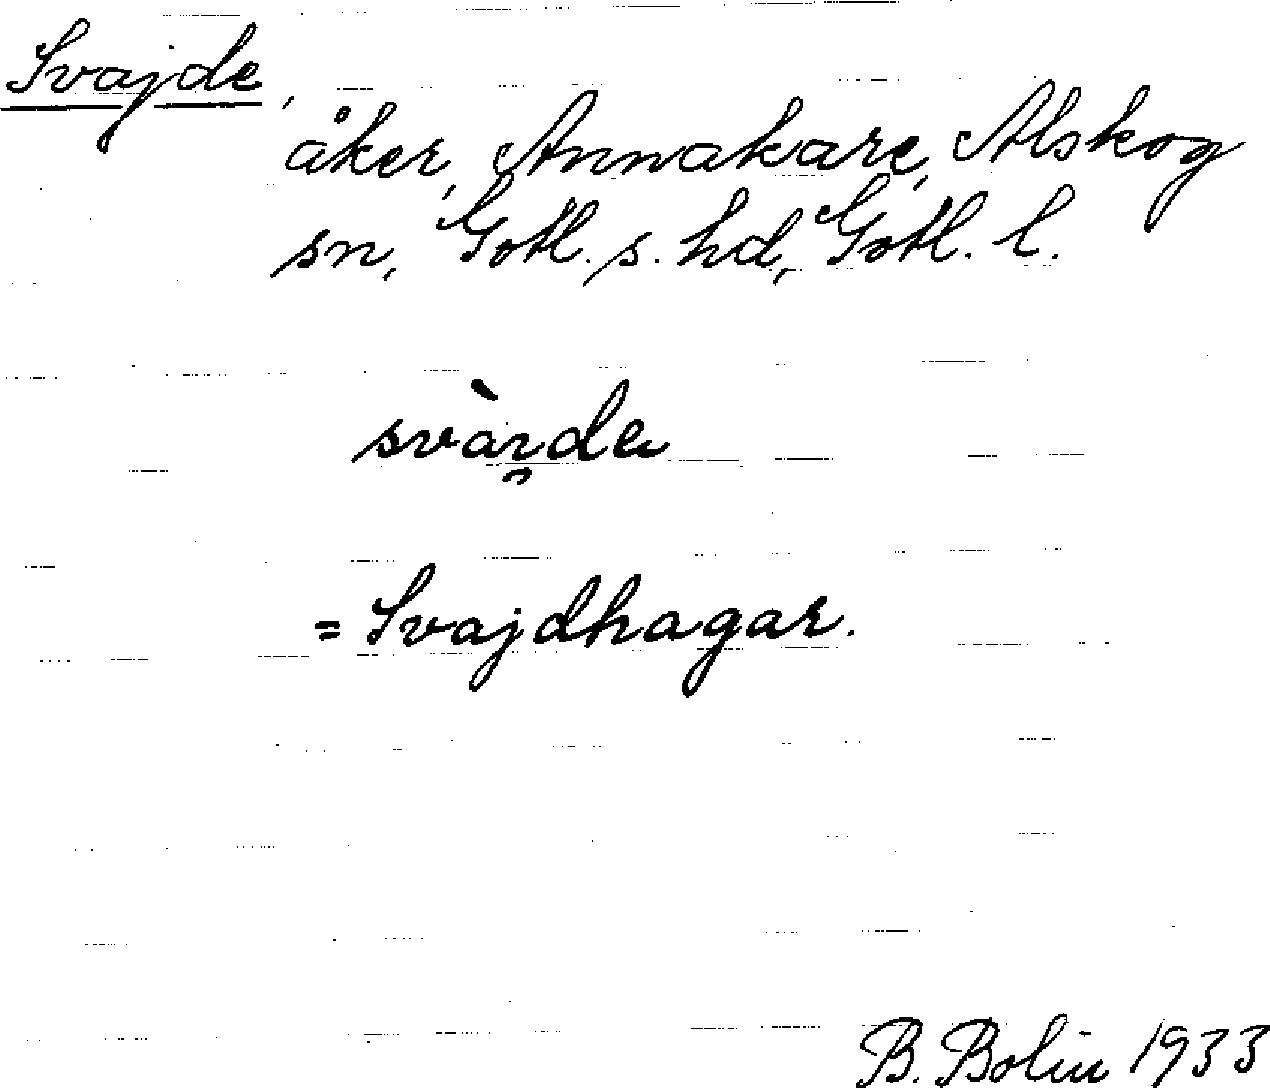 Svajde,
åker, Annakare, Alskog
sn, Gotl. s. hd, Gotl. l.
= Svajdhagar.
B. Bolin 1933